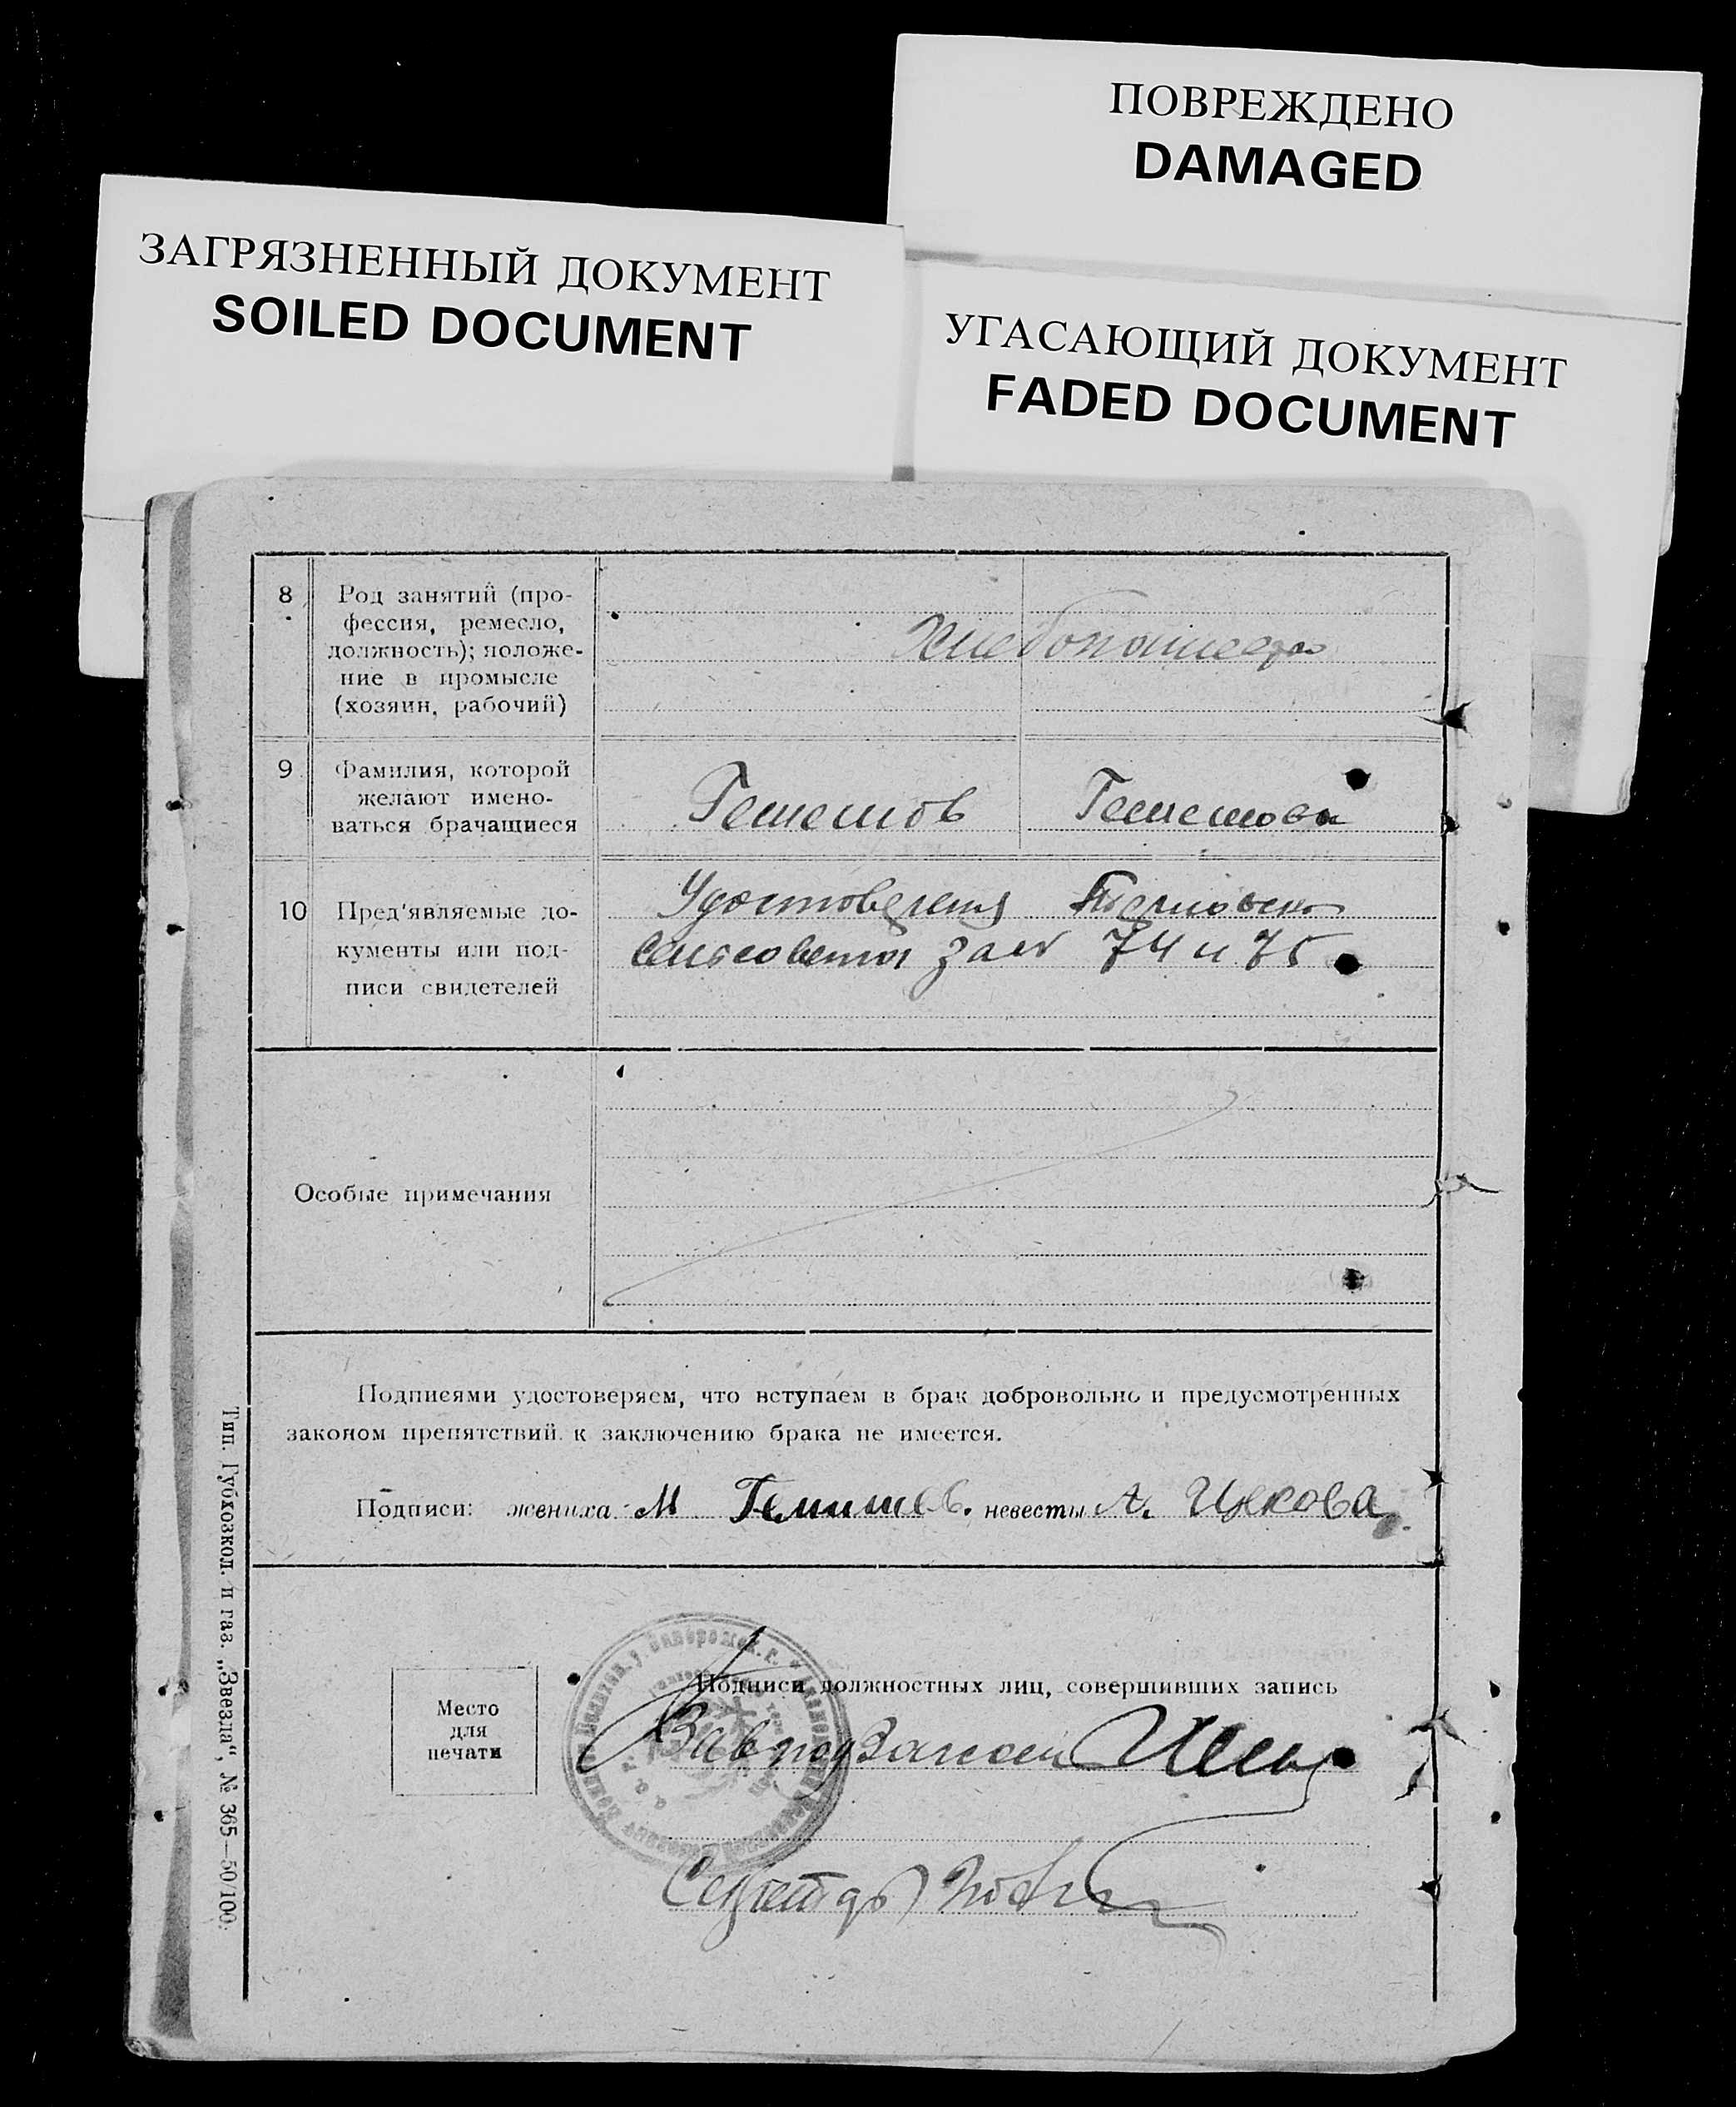 ПОВРЕЖДЕНО
DAMAGED
ЗАГРЯЗНЕННЫЙ ДОКУМЕНТ
SOILED DOCUMENT
УГАСАЮЩИЙ ДОКУМЕНТ
FADED DOCUMENT
8
Род занятий (про-
фессия, ремесло,
должность); положе-
ние в промысле
(хозяин, рабочий)
Хлебопашество
9
Фамилия, которой
желают имено-
ваться брачащиеся
Гемешов
Гемешова
10
Пред'являемые до-
кументы или под-
писи свидетелей
Удостоверения
сельсовета за № 74 и 75
Особые примечания
Подписями удостоверяем, что вступаем в брак добровольно и предусмотренных
законом препятствий к заключению брака не имеется.
Подписи: жениха М невесты А. Цнкова
Место
для
печати
Подписи должностных лиц, совершивших запись
Зав подзагсом
Секретарь
Тип. Губхозкол. и газ. „Звезда“, № 365—50/100.